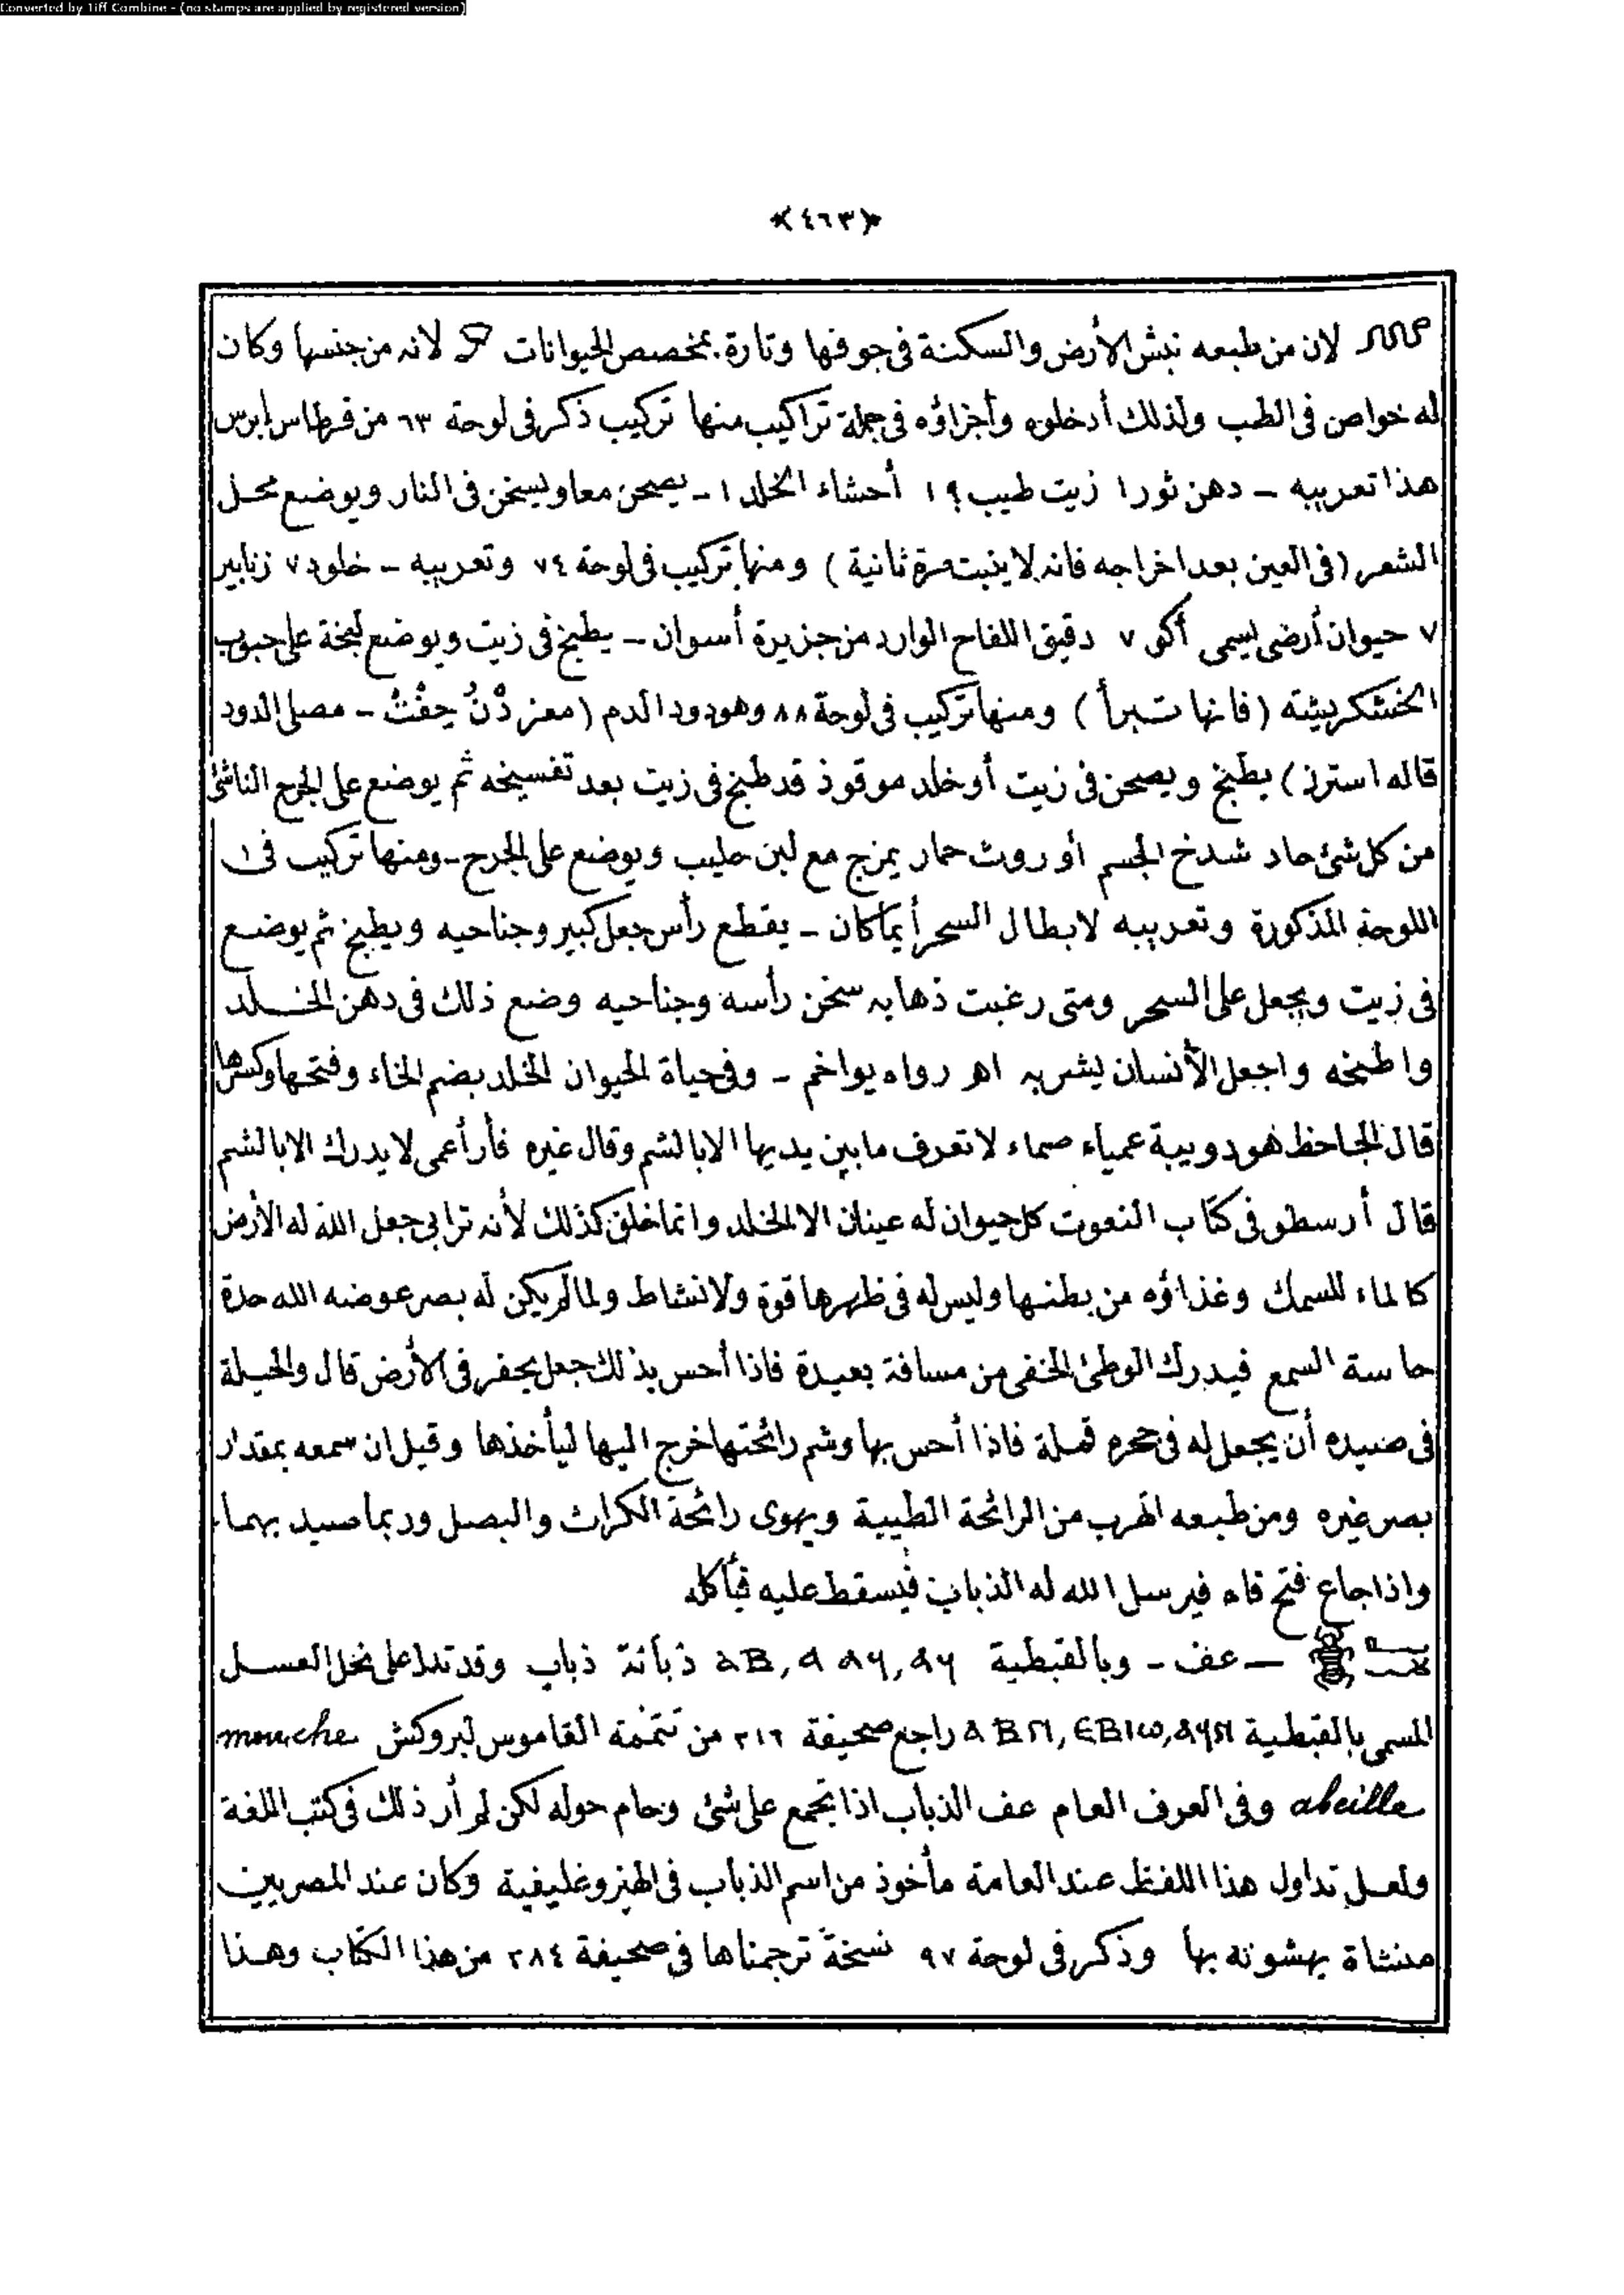 Converted by Tiff Combine - (no stamps are applied by registered version)
﴿٤٦٣﴾
لان من طبعه نبش الأرض والسكنة فى جوفها وتارة بمخصص الحيوانات لانه من جنسها وكان
له خواص فى الطب ولذلك أدخلوه وأجزاؤه فى جملة تراكيب منها تركيب ذكر فى لوحة ٦٣ من قرطاس إبرس
هذا تعريبه – دهن ثور ١ زيت طيب ؟ ١ أحشاء الخلد ١ – يصحن معا ويسخن فى النار ويوضع محل
الشعر (فى العين بعد اخراجه فانه لا ينبت مرة ثانية) ومنها تركيب فى لوحة ٧٤ وتعريبه – خلود ٧ زنابير
٧ حيوان أرضى يسمى أكو ٧ دقيق اللفاح الوارد من جزيرة أسوان – يطبخ فى زيت ويوضع لبخة على حبوب
الخشكريشه (فانها تبرأ) ومنها تركيب فى لوحة ٨٨ وهو دود الدم (معز دْنُ حِفْتُ – مصل الدود
قاله استرز) يطبخ ويصحن فى زيت أو خلد موقوذ قد طبخ فى زيت بعد تفسيخه ثم يوضع على الجرح الناشئ
من كل شئ حاد شدخ الجسم أو روث حمار يمزج مع لبن حليب ويوضع على الجرح – ومنها تركيب فى
اللوحة المذكورة وتعريبه لابطال السحر أيما كان – يقطع رأس جعل كبير وجناحيه ويطبخ ثم يوضع
فى زيت ويجعل على السحر ومتى رغبت ذهابه سخن رأسه وجناحيه وضع ذلك فى دهن الخلد
واطبخه واجعل الأنسان يشربه اهر رواه يواخم – وفى حياة الحيوان الخلد بضم الخاء وفتحها وكسرها
قال الجاحظ هو دويبة عمياء صماء لا تعرف ما بين يديها الا بالشم وقال غيره فأر أعمى لا يدرك الا بالشم
قال أرسطو فى كتاب النعوت كل حيوان له عينان الا الخلد وانما خلق كذلك لأنه ترابى جعل الله له الأرض
كالماء للسمك وغذاؤه من بطنها وليس له فى ظهرها قوة ولا نشاط ولما لم يكن له بصر عوضه الله حدة
حاسة السمع فيدرك الوطئ الخفى من مسافة بعيدة فاذا أحس بذلك جعل يحفر فى الأرض قال والحيلة
فى صيده أن يجعل له فى جحره قملة فاذا أحس بها وشم رائحتها خرج اليها ليأخذها وقيل ان سمعه بمقدار
بصر غيره ومن طبعه الهرب من الرائحة الطيبة ويهوى رائحة الكراث والبصل وربما صيد بهما
واذا جاع فتح فاه فيرسل الله له الذباب فيسقط عليه فيأكله
– عف – وبالقبطية ⲁϥ, ⲁⲁϥ, ⲁⲃ ذبانة ذباب وقد تدل على نحل العسل
المسمى بالقبطية ⲁϥⲛ, ⲉⲃⲓⲱ, ⲁⲃⲛ راجع صحيفة ٣١٦ من تتمة القاموس لبروكش mouche
abeille وفى العرف العام عف الذباب اذا تجمع على شئ وحام حوله لكن لم أر ذلك فى كتب اللغة
ولعل تداول هذا اللفظ عند العامة مأخوذ من اسم الذباب فى الهيروغليفية وكان عند المصريين
منشاة يهشونه بها وذكر فى لوحة ٩٧ نسخة ترجمناها فى صحيفة ٣٨٤ من هذا الكتاب وهذا